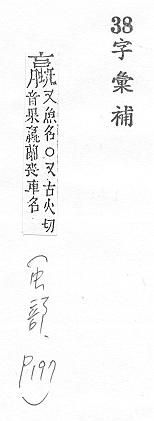 38字彙補
蠃
又魚名○又古火切
音果蠃蘭喪車名
(虫部、P197)